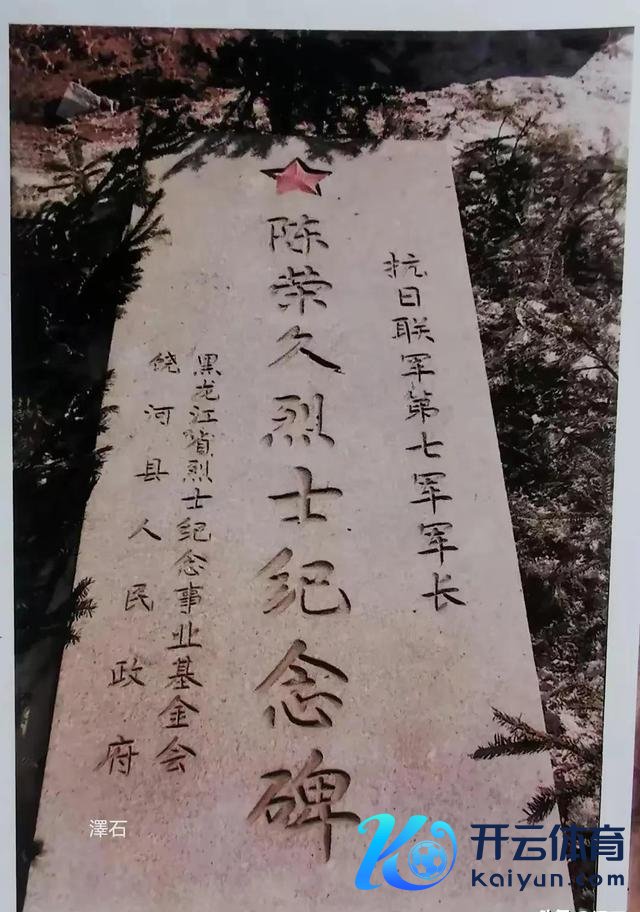 抗日联军第七军军长
陈荣久烈士纪念碑
黑龙江省烈士纪念事业基金会
饶河县人民政府
澤石
开云体育
kaiyun.com